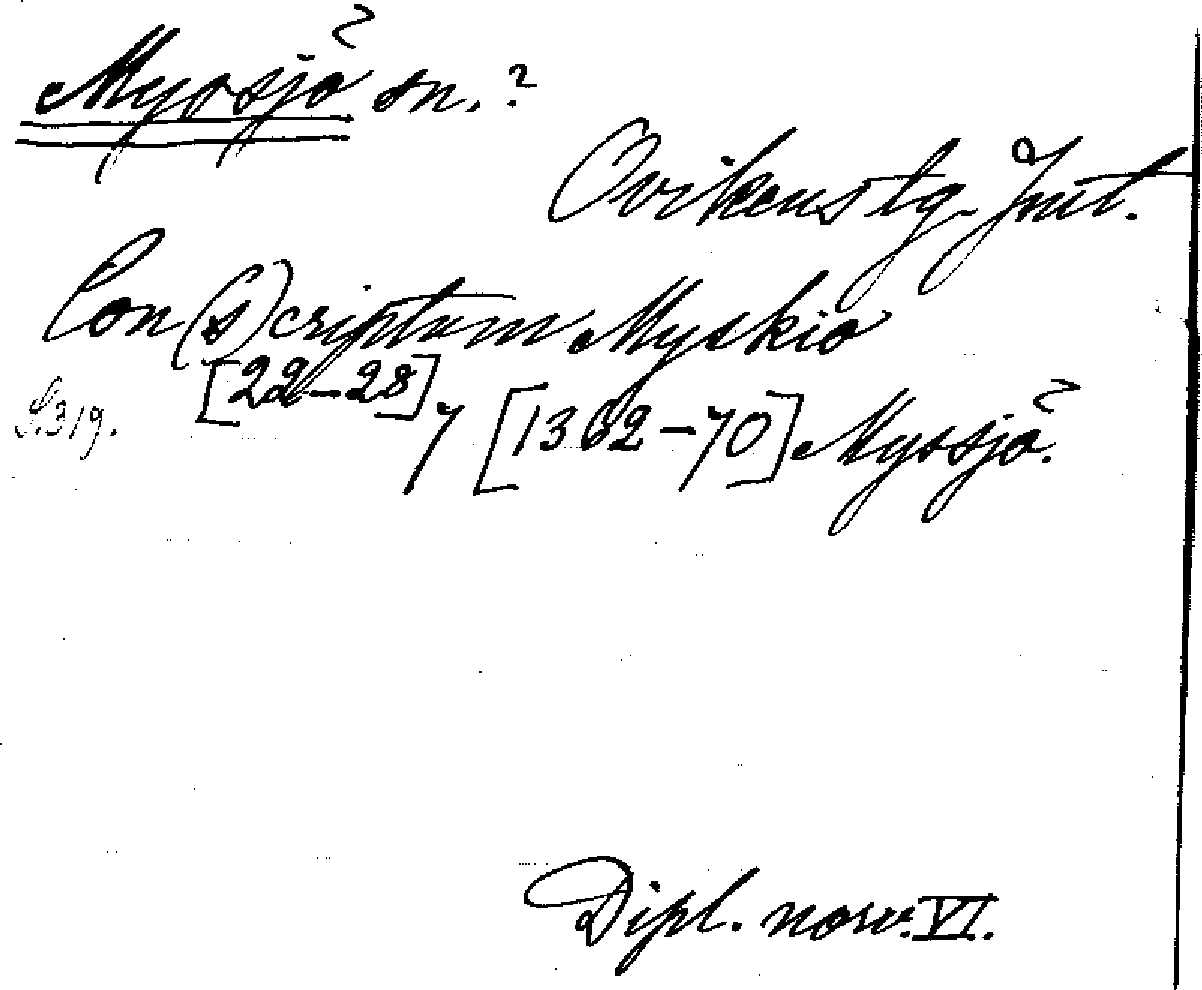 Myssjö sn. ?
Ovikens tg. Jmt.
Con(s)criptum Myskio
[22-28]/7 [1362-70] Myssjö.
S. 319.
Dipl. norv. VI.